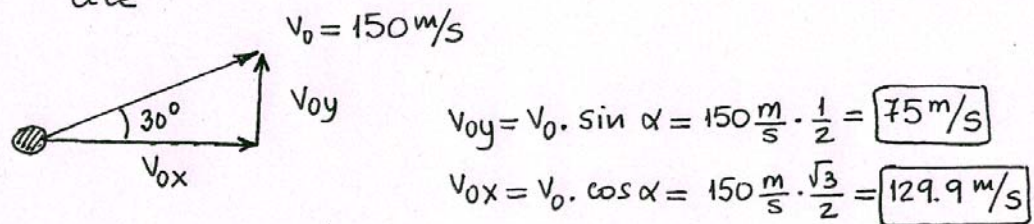 V₀ = 150 m/s
V₀y
30°
V₀x
V₀y = V₀. sin α = 150 m/s · 1/2 = 75 m/s
V₀x = V₀. cos α = 150 m/s · √3/2 = 129.9 m/s